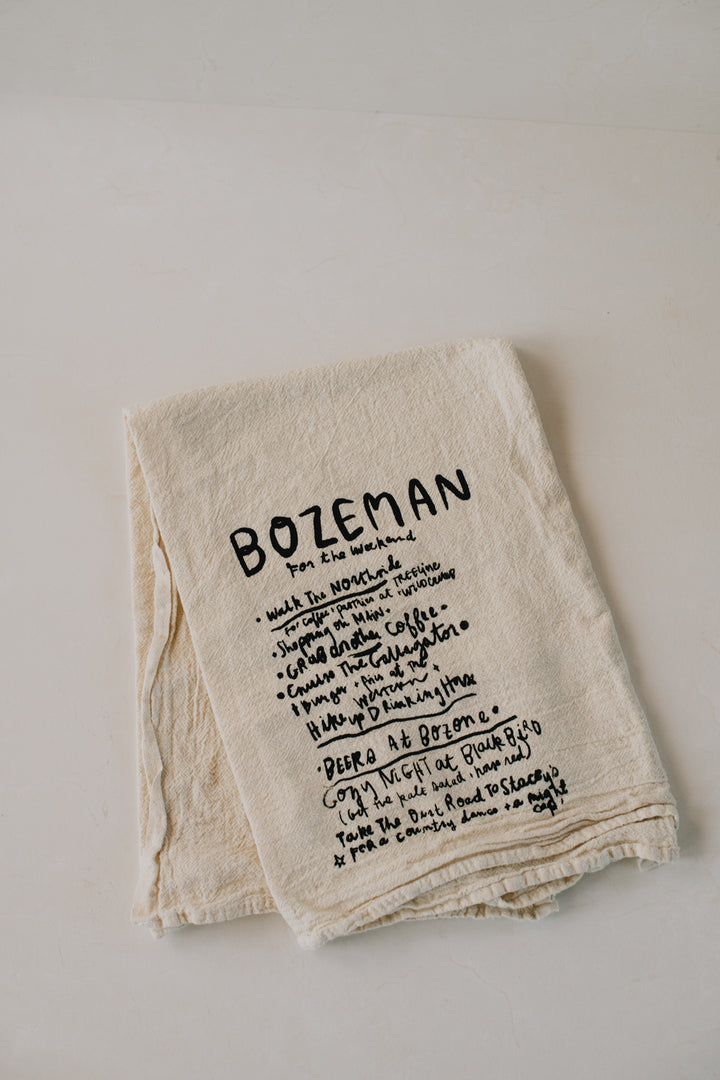 BOZEMAN
For the weekend
• Walk The Northside
For coffee + pastries at TREELINE
• WILD CRUMB
• Shopping on MAIN •
• GRAB another Coffee •
• Cruise The Gallagator •
+ Burger + fries at The
Western +
Hike up Drinking Horse
• BEERS At BOZONE •
COZY NIGHT at Black BIRD
(Get the kale salad, house red)
Take The Dust Road To Stacey's
☆ For a country dance + a night
cap!